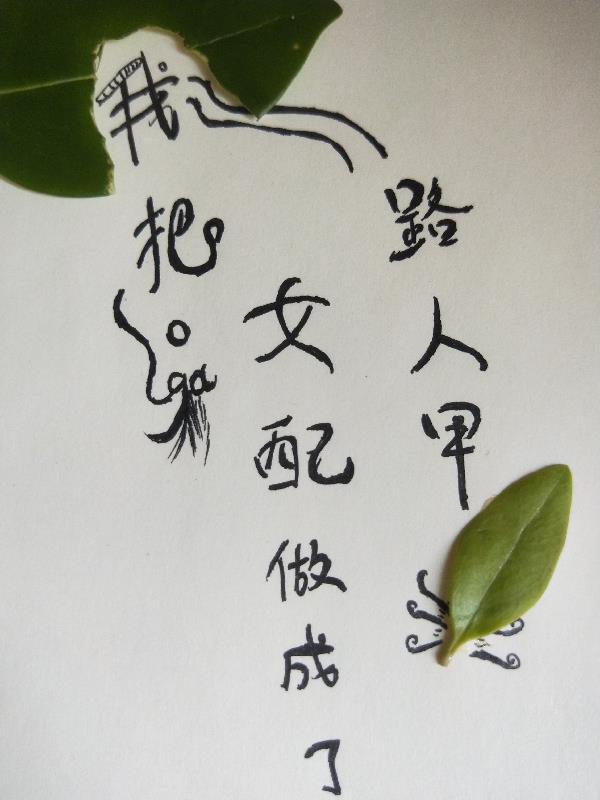 我把
女配做成了
路人甲